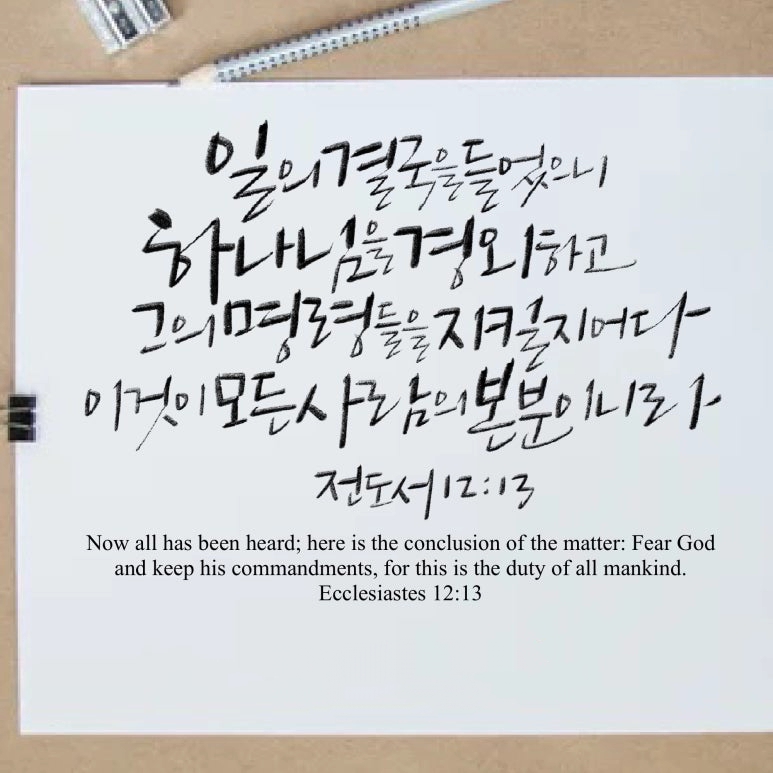 일의 결국을 들었으니
하나님을 경외하고
그의 명령들을 지킬지어다
이것이 모든 사람의 본분이니라
전도서 12:13
Now all has been heard; here is the conclusion of the matter: Fear God
and keep his commandments, for this is the duty of all mankind.
Ecclesiastes 12:13